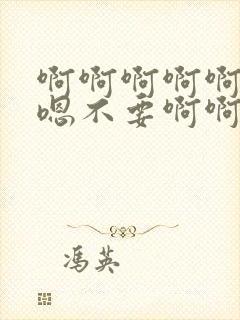 啊啊啊啊啊
嗯不要啊啊
冯英